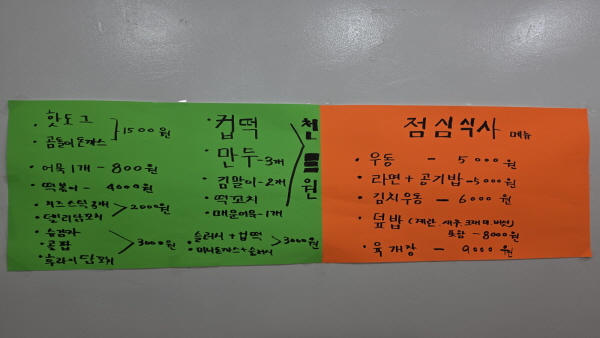 핫도그
곰돌이돈까스
1500원
어묵1개-800원
떡볶이-4000원
치즈스틱2개
델리닭꼬치
2000원
슬러시
콜팝
후라이닭꼬치
3000원
컵떡
만두-3개
김말이-2개
떡꼬치
매운어묵-1개
천원
슬러시+컵떡
미니돈까스+슬러시
3000원
점심식사 메뉴
우동 - 5000원
라면+공기밥-5000원
김치우동 - 6000원
덮밥 (계란 새우
포함 - 8000원
육개장 - 9000원